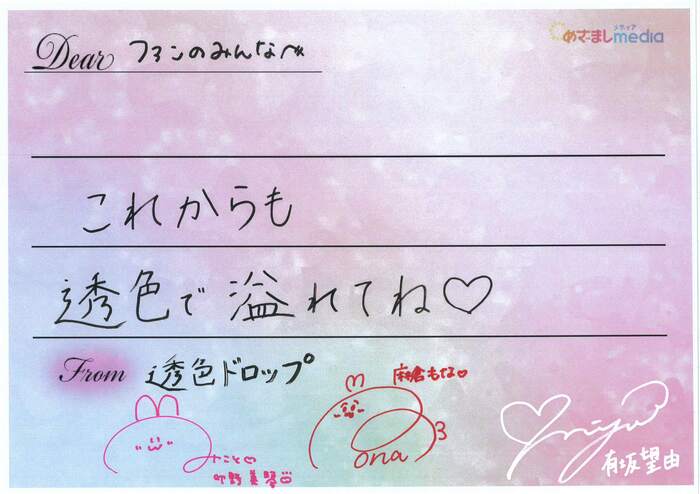 めざましmedia
メディア
Dear ファンのみんなへ
これからも
透色で溢れてね♡
From 透色ドロップ
麻倉もな♡
みこと♡
叶野美琴
ona
有坂望由